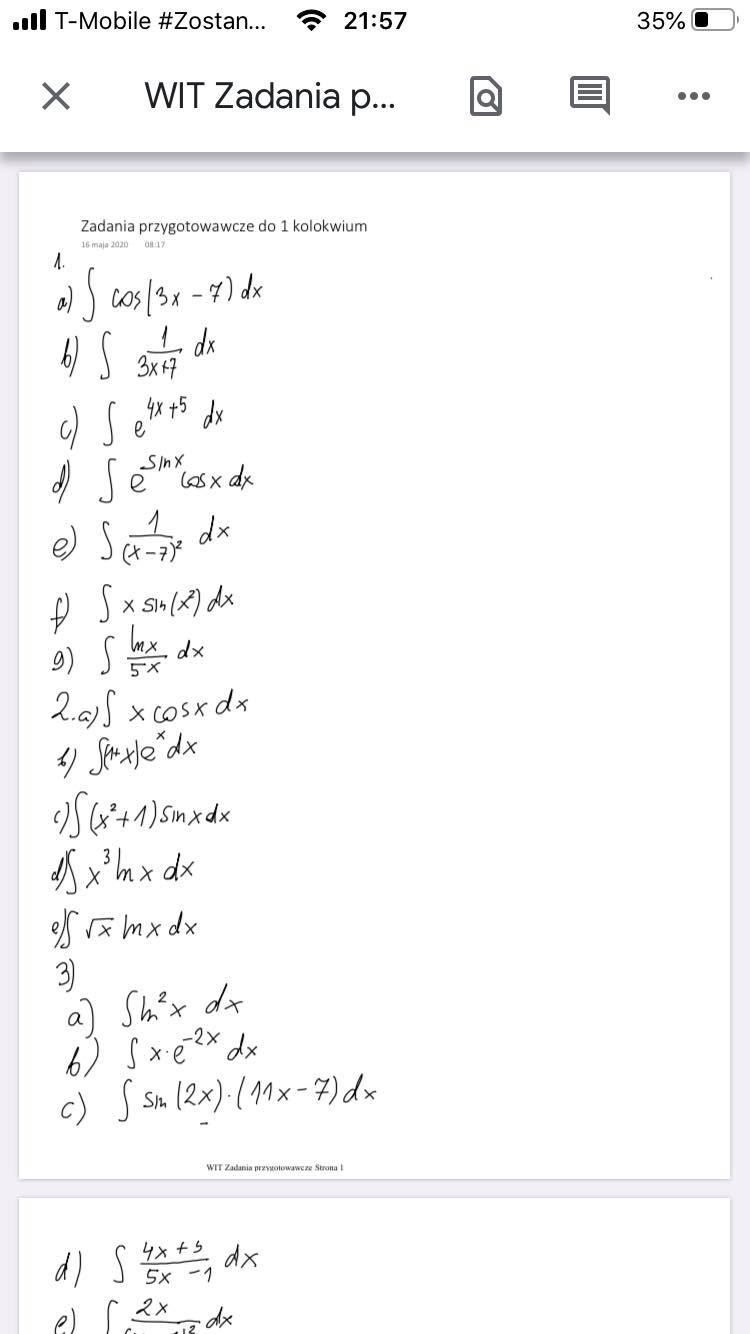 T-Mobile #Zostan... 21:57 35%
WIT Zadania p...
Zadania przygotowawcze do 1 kolokwium
16 maja 2020 08:17
1.
a) ∫ cos(3x - 7) dx
b) ∫ 1/(3x+7) dx
c) ∫ e^(4x+5) dx
d) ∫ e^(sin x) cos x dx
e) ∫ 1/(x-7)² dx
f) ∫ x sin(x²) dx
g) ∫ ln x/5x dx
2. a) ∫ x cos x dx
b) ∫(1+x)e^x dx
c) ∫(x²+1) sin x dx
d) ∫ x³ ln x dx
e) ∫ √x ln x dx
3)
a) ∫ ln²x dx
b) ∫ x·e^(-2x) dx
c) ∫ sin(2x)·(11x-7) dx
WIT Zadania przygotowawcze Strona 1
d) ∫ (4x+3)/(5x-1) dx
e) ∫ 2x dx